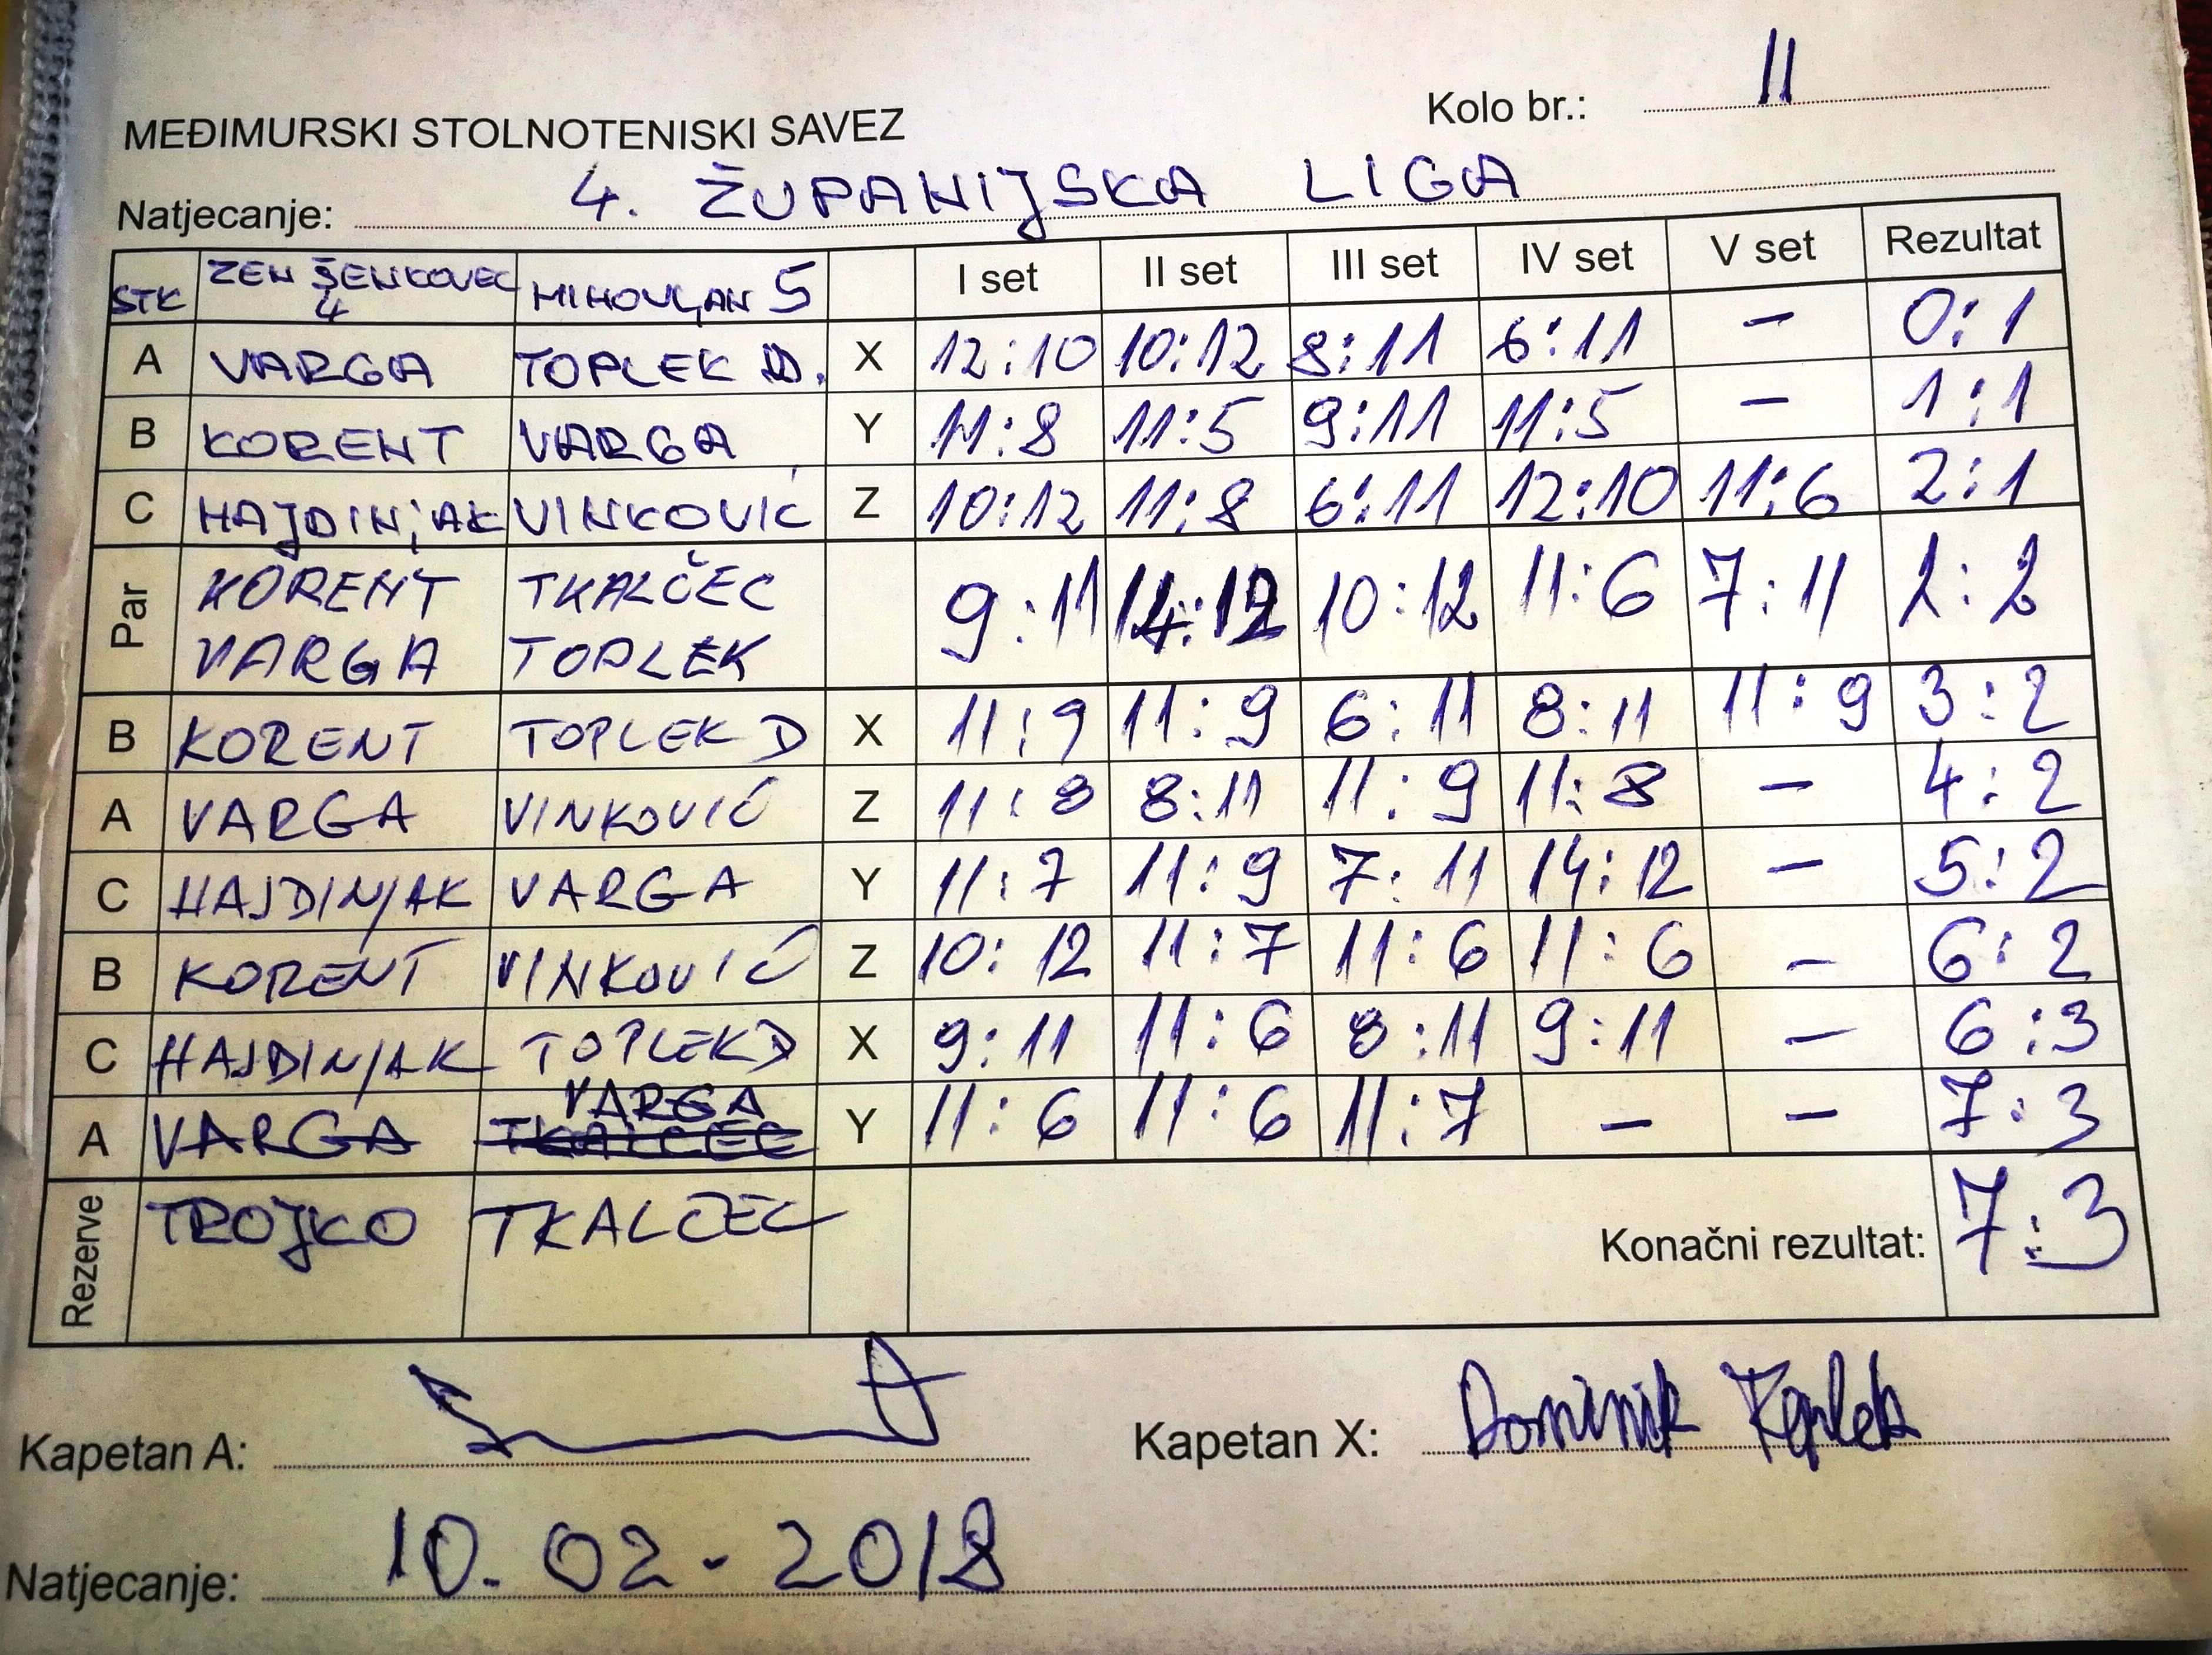 Kolo br.: 11
MEĐIMURSKI STOLNOTENISKI SAVEZ
Natjecanje: 4. ŽUPANIJSKA LIGA
STK ZEN ŠENKOVEC 4 MIHOVLJAN 5 I set II set III set IV set V set Rezultat
A VARGA TOPLEK D. X 12:10 10:12 8:11 6:11 - 0:1
B KORENT VARGA Y 11:8 11:5 9:11 11:5 - 1:1
C HAJDINJAK VINKOVIĆ Z 10:12 11:8 6:11 12:10 11:6 2:1
Par KORENT TKALČEC 9:11 14:12 10:12 11:6 7:11 2:2
VARGA TOPLEK
B KORENT TOPLEK D X 11:9 11:9 6:11 8:11 11:9 3:2
A VARGA VINKOVIĆ Z 11:8 8:11 11:9 11:8 - 4:2
C HAJDINJAK VARGA Y 11:7 11:9 7:11 14:12 - 5:2
B KORENT VINKOVIĆ Z 10:12 11:7 11:6 11:6 - 6:2
C HAJDINJAK TOPLEK D X 9:11 11:6 8:11 9:11 - 6:3
VARGA
A VARGA TKALČEC Y 11:6 11:6 11:7 - - 7:3
Rezerve TROJKO TKALČEC Konačni rezultat: 7:3
Kapetan A: Kapetan X: Dominik Toplek
Natjecanje: 10.02-2018